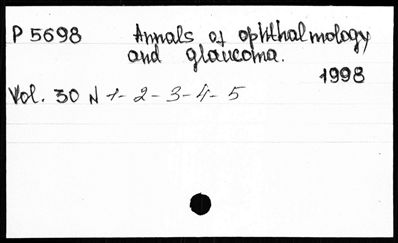 P 5698 Annals of ophthalmology
and glaucoma.
1998
Vol. 30 N 1-2-3-4-5